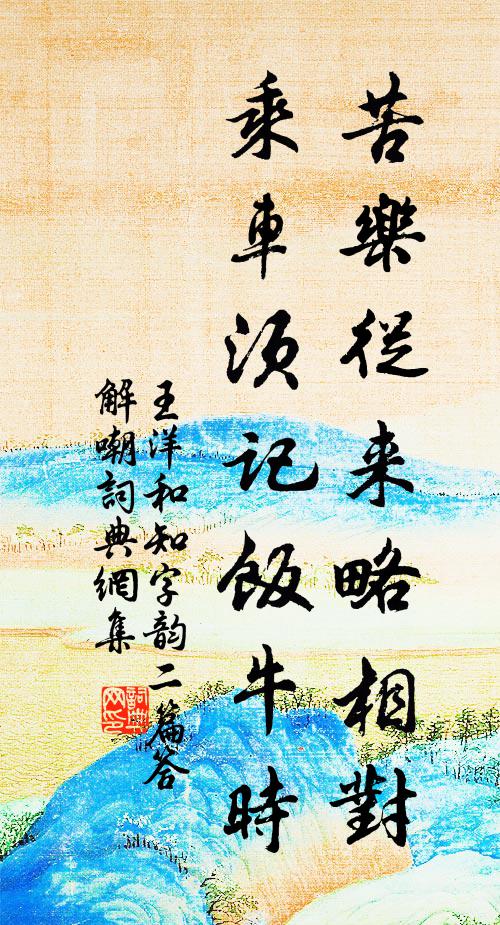 苦樂從来略相對
乘車須记飯牛時
王洋和知字韵二篇答
解嘲詞典網集